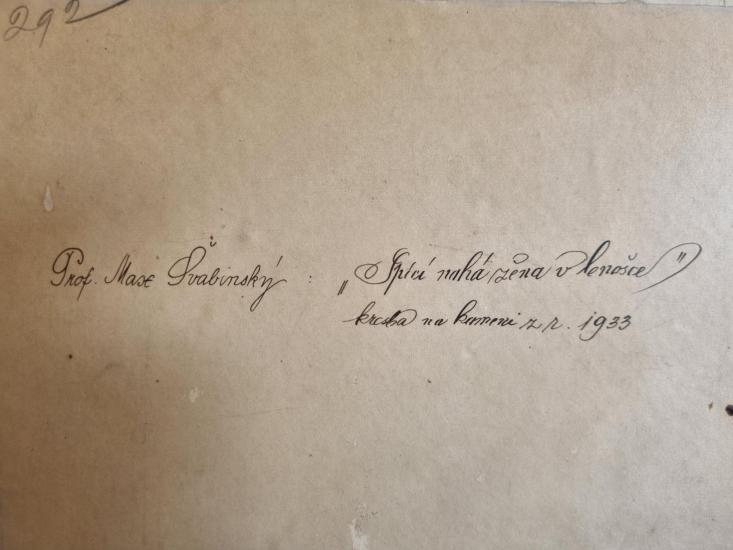 292
Prof. Max Švabinský : „Spící nahá žena v lenošce"
kresba na kameni z r. 1933